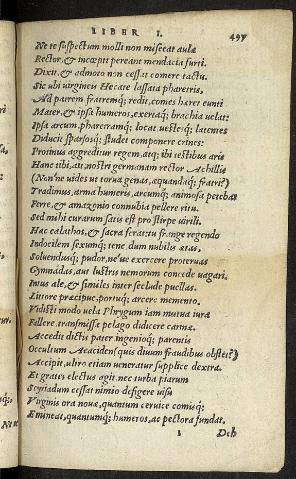 LIBER I.
497
Ne te suspectum molli non misceat aulæ
Rector, & incœpti pereant mendacia furti.
Dixit, & admoto non cessat comere tactu.
Sic ubi virgineis Hecate lassata pharetris,
Ad patrem fratremq; redit, comes hæret eunti
Mater, & ipsa humeros, exertaq; brachia velat:
Ipsa arcum, pharetramq; locat, vesteq; latentes
Diducit sparsosq; studet componere crines:
Protinus aggreditur regem, atq; ibi testibus aris
Hanc tibi, ait, nostri germanam rector Achillis
(Non'ne uides ut torua genas, æquandaq; fratri?)
Tradimus, arma humeris, arcumq; animosa petebat
Ferre, & amazonio connubia pellere ritu.
Sed mihi curarum satis est pro stirpe uirili.
Hæc calathos, & sacra ferat: tu frange regendo
Indocilem sexumq; tene, dum nubilis ætas,
Soluendusq; pudor, ne'ue exercere proteruas
Gymnadas, aut lustris nemorum concede uagari.
Intus ale, & similes inter seclude puellas.
Littore præcipue, portuq; arcere memento.
Vidisti modo uela Phrygum iam mutua iura
Fallere, transmissæ pelago didicere carinæ.
Accedit dictis pater ingenioq; parentis
Occultum Aeaciden (quis diuum fraudibus obstet?)
Accipit, ultro etiam ueneratur supplice dextra.
Et grates electus agit, nec turba piarum
Scyriadum cessat nimio defigere uisu
Virginis ora nouæ, quantum ceruice comisq;
Emineat, quantumq; humeros, ac pectora fundat.
1 Deh